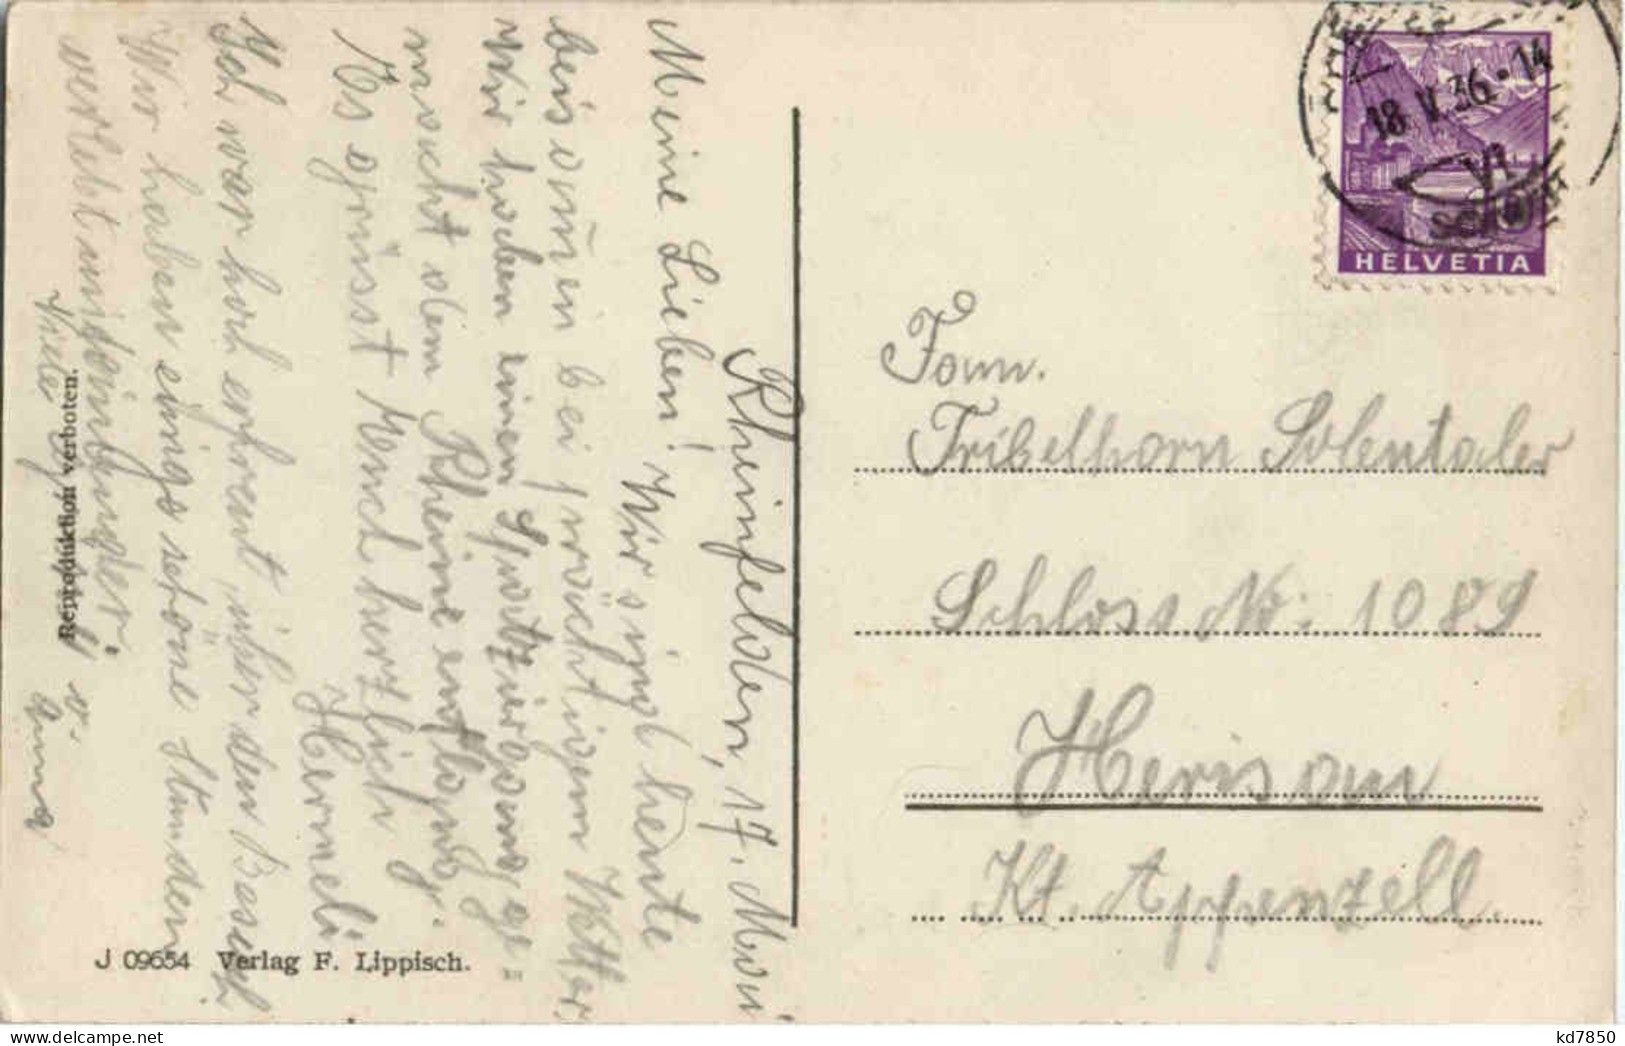 Rheinfelden, 17. Mai
Meine Lieben! Wir sind heute
beisamen bei prächtigem Wetter,
Wir haben einen Spatziergang ge-
macht dem Rheine entlang.
Es grüsst Euch herzlich
Hermeli
Ich war hoch erfreut über den Besuch
Wir haben einige schöne Stunden
verlebt miteinander.
Anna
Reproduktion verboten.
J 09654 Verlag F. Lippisch.
18.V.36-14
HELVETIA
Fam.
Tribelhorn Solentaler
Schloss No: 1089
Herisau
Kt. Appenzell.
kd7850